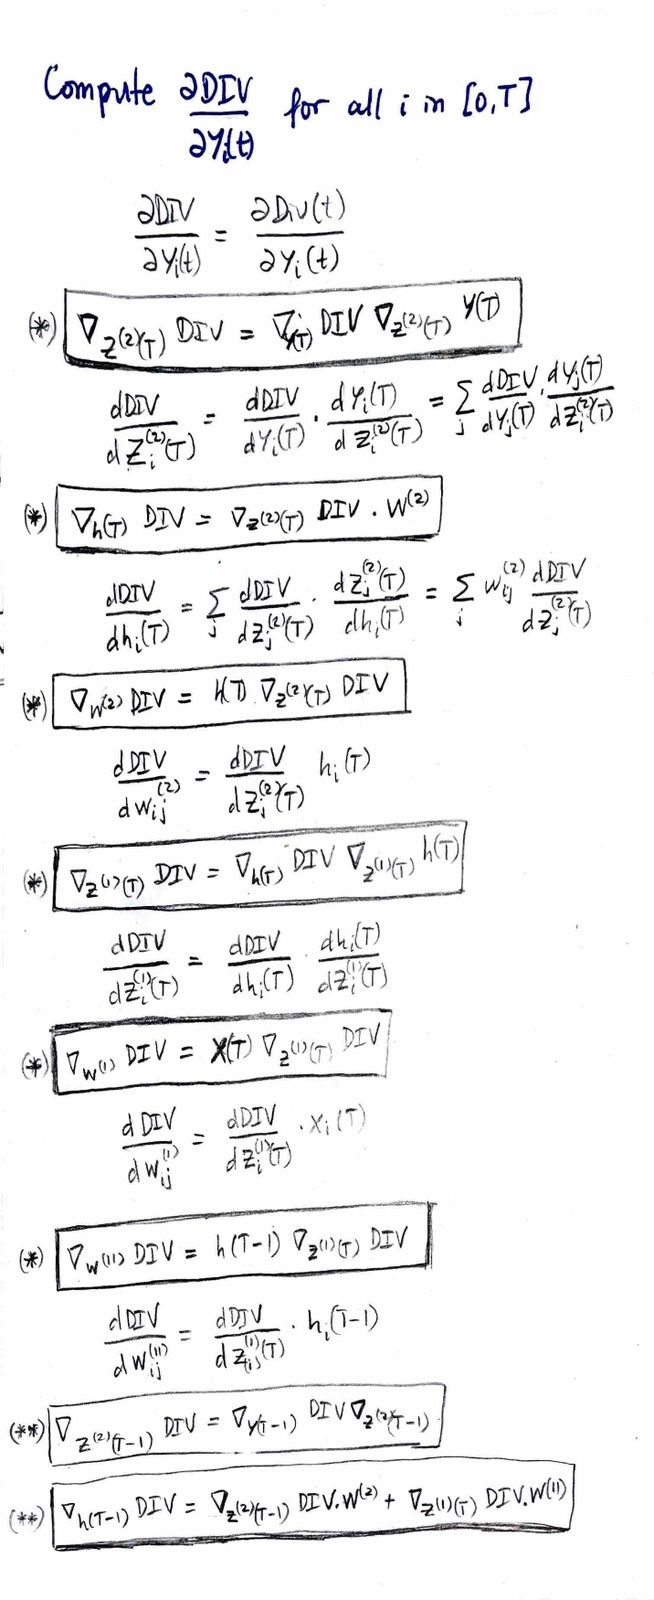 Compute ∂DIV/∂Yᵢ(t) for all i in [0,T]
∂DIV/∂Yᵢ(t) = ∂Div(t)/∂Yᵢ(t)
(*) ∇_{Z^{(2)}(T)} DIV = ∇_{Y(T)} DIV ∇_{Z^{(2)}(T)} Y(T)
dDIV/dZᵢ^{(2)}(T) = dDIV/dYᵢ(T) · dYᵢ(T)/dZᵢ^{(2)}(T) = Σ_j dDIV/dYⱼ(T) · dYⱼ(T)/dZᵢ^{(2)}(T)
(*) ∇_{h(T)} DIV = ∇_{Z^{(2)}(T)} DIV . W^{(2)}
dDIV/dhᵢ(T) = Σ_j dDIV/dZⱼ^{(2)}(T) · dZⱼ^{(2)}(T)/dhᵢ(T) = Σ_j w_{ij}^{(2)} dDIV/dZⱼ^{(2)}(T)
(*) ∇_{W^{(2)}} DIV = h(T) ∇_{Z^{(2)}(T)} DIV
dDIV/dw_{ij}^{(2)} = dDIV/dZⱼ^{(2)}(T) hᵢ(T)
(*) ∇_{Z^{(1)}(T)} DIV = ∇_{h(T)} DIV ∇_{Z^{(1)}(T)} h(T)
dDIV/dZᵢ^{(1)}(T) = dDIV/dhᵢ(T) · dhᵢ(T)/dZᵢ^{(1)}(T)
(*) ∇_{W^{(1)}} DIV = X(T) ∇_{Z^{(1)}(T)} DIV
dDIV/dw_{ij}^{(1)} = dDIV/dZᵢ^{(1)}(T) · Xᵢ(T)
(*) ∇_{W^{(11)}} DIV = h(T-1) ∇_{Z^{(1)}(T)} DIV
dDIV/dw_{ij}^{(11)} = dDIV/dZ^{(1)}(T) · hᵢ(T-1)
(**) ∇_{Z^{(2)}(T-1)} DIV = ∇_{Y(T-1)} DIV ∇_{Z^{(2)}(T-1)}
(**) ∇_{h(T-1)} DIV = ∇_{Z^{(2)}(T-1)} DIV.W^{(2)} + ∇_{Z^{(1)}(T)} DIV.W^{(11)}